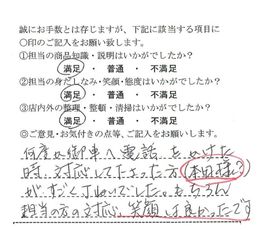 誠にお手数とは存じますが、下記に該当する項目に
○印のご記入をお願い致します。
①担当の商品知識・説明はいかがでしたか?
満足 ・ 普通 ・ 不満足
②担当の身だしなみ・笑顔・態度はいかがでしたか?
満足 ・ 普通 ・ 不満足
③店内外の整理・整頓・清掃はいかがでしたか?
満足 ・ 普通 ・ 不満足
◎ご意見・お気付きの点等、ご記入をお願いします。
何度か御車へ電話をかけた
時、対応して下さった方(本田様?)
がすごく丁ねいでした。もちろん
担当の方の対応、笑顔も良かったです